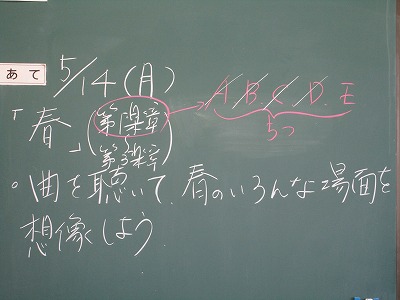 あて
5/14(月)
A B. C. D. E
5つ
「春」(第1楽章
第3楽章)
○曲を聴いて、春のいろんな場面を
想像しよう。